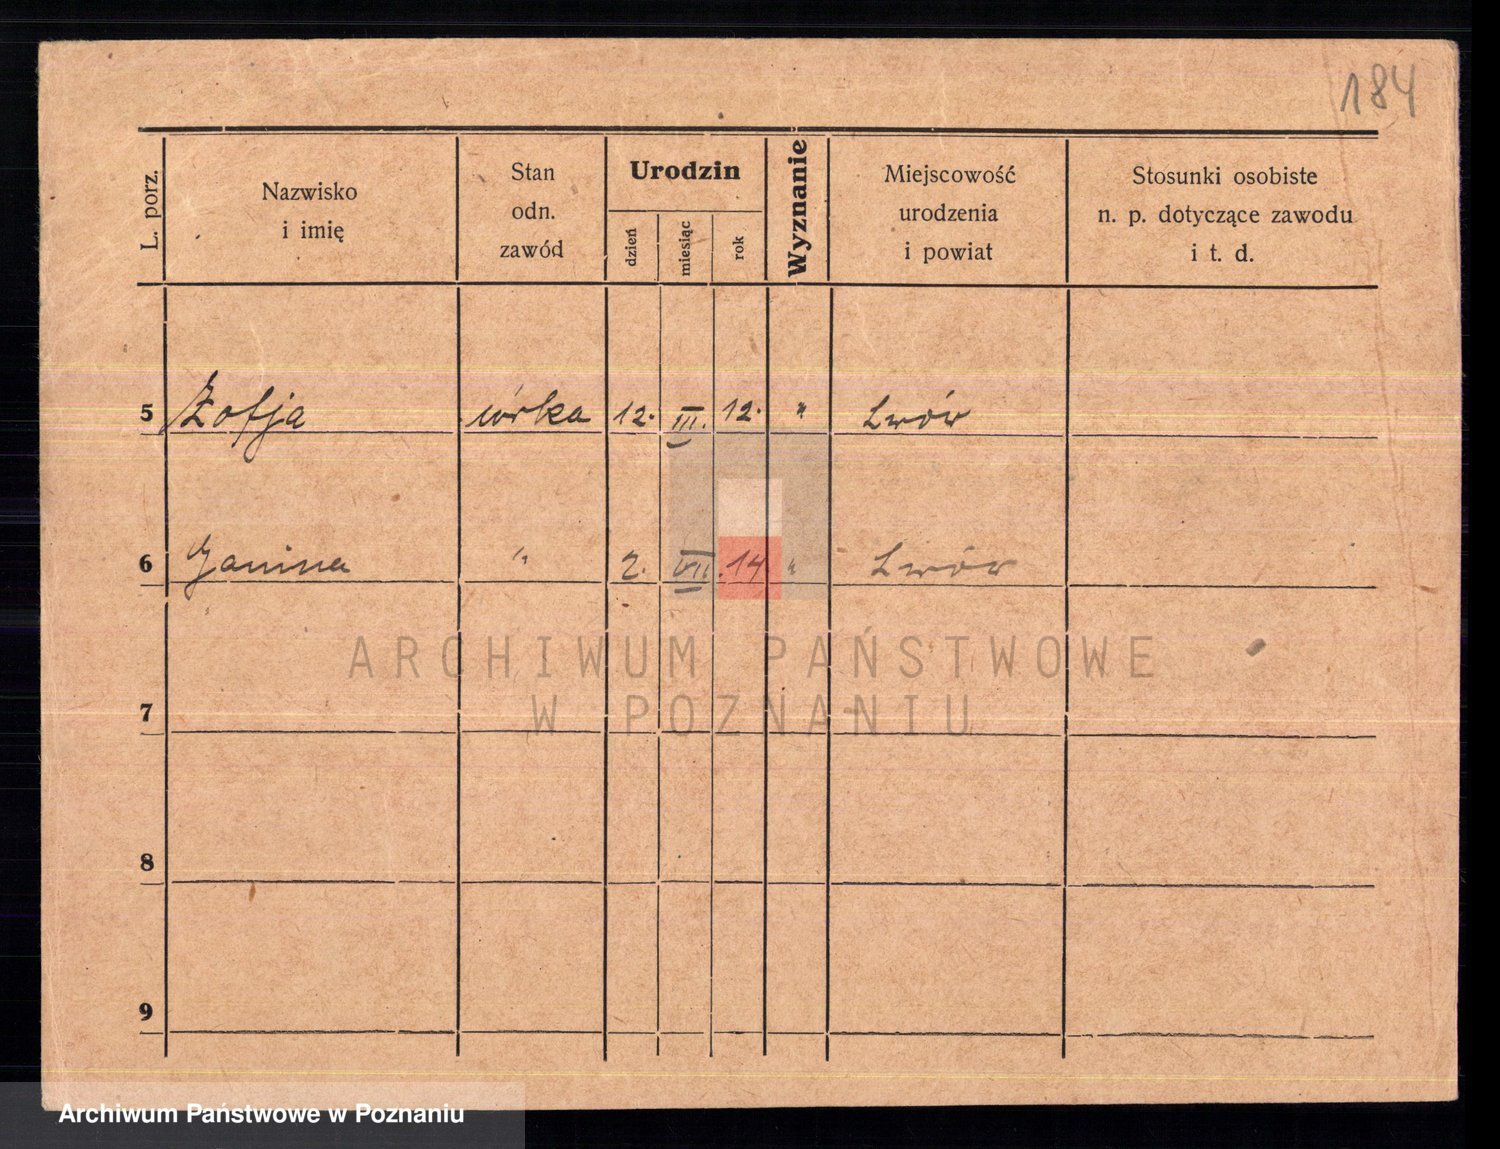 184
L. porz.
Nazwisko
i imię
Stan
odn.
zawód
Urodzin
dzień
miesiąc
rok
Wyznanie
Miejscowość
urodzenia
i powiat
Stosunki osobiste
n. p. dotyczące zawodu
i t. d.
5 Zofja córka 12. III. 12. " Lwów
6 Janina " 2. VII. 14 " Lwów
ARCHIWUM PAŃSTWOWE
W POZNANIU
7
8
9
Archiwum Państwowe w Poznaniu